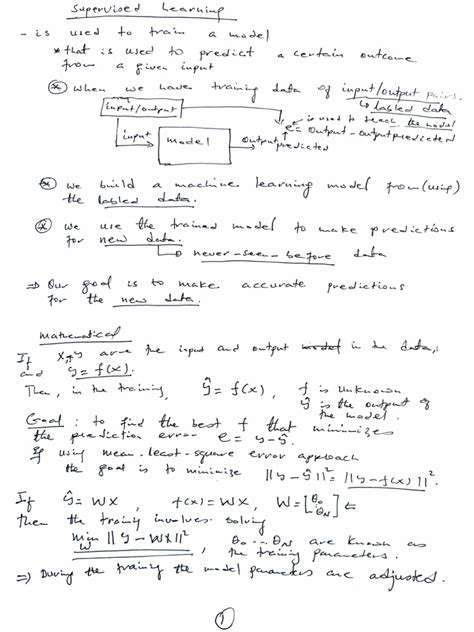 Supervised Learning
- is used to train a model
* that is used to predict a certain outcome
from a given input
* when we have training data of input/output pairs.
↳ labled data
input/output
is used to teach the model
e = output - output predicted
input
model
output predicted
* we build a machine learning model from (using)
the labled data.
* we use the trained model to make predictions
for new data.
↳ never-seen-before data
⇒ Our goal is to make accurate predictions
for the new data.
Mathematical
If x, y are the input and output model in the data,
and ŷ = f(x).
Then, in the training, ŷ = f(x), f is unknown
ŷ is the output of
the model.
Goal: to find the best f that minimizes
the prediction error e = y - ŷ.
If using mean-least-square error approach
the goal is to minimize ||y - ŷ||² = ||y - f(x)||².
If ŷ = WX, f(x) = WX, W = [θ₀ ... θN]
then the training involves solving
min ||y - WX||²
W
θ₀ ... θN are known as
the training parameters.
⇒ During the training the model parameters are adjusted.
1